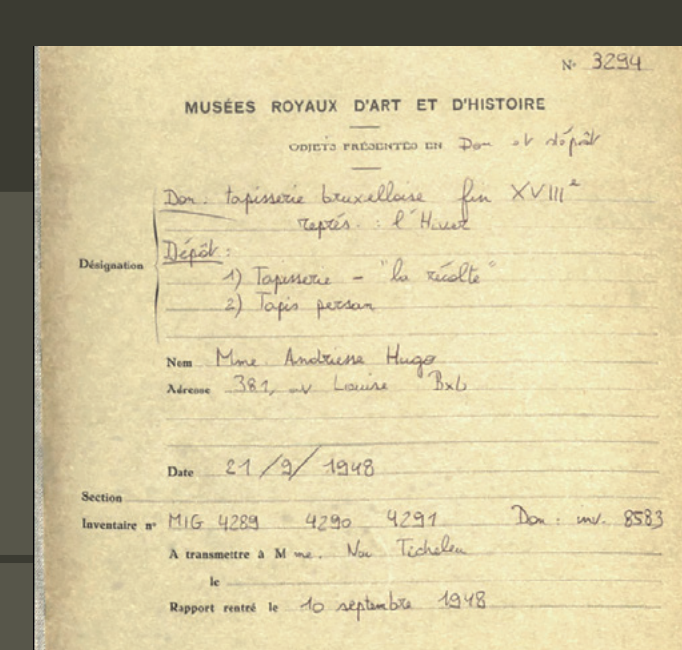 N° 3294
MUSÉES ROYAUX D'ART ET D'HISTOIRE
OBJETS PRÉSENTÉS EN Don et dépôt
Don : tapisserie bruxelloise fin XVIIIe
représ. : l'Hiver
Dépôt :
Désignation
1) Tapisserie - "la récolte"
2) Tapis persan
Nom Mme Andriesse Hugo
Adresse 381, av Louise Bxl
Date 21/9/1948
Section
Inventaire n° MIG 4289 4290 4291 Don : inv. 8583
A transmettre à Mme.
le
Rapport rentré le 10 septembre 1948